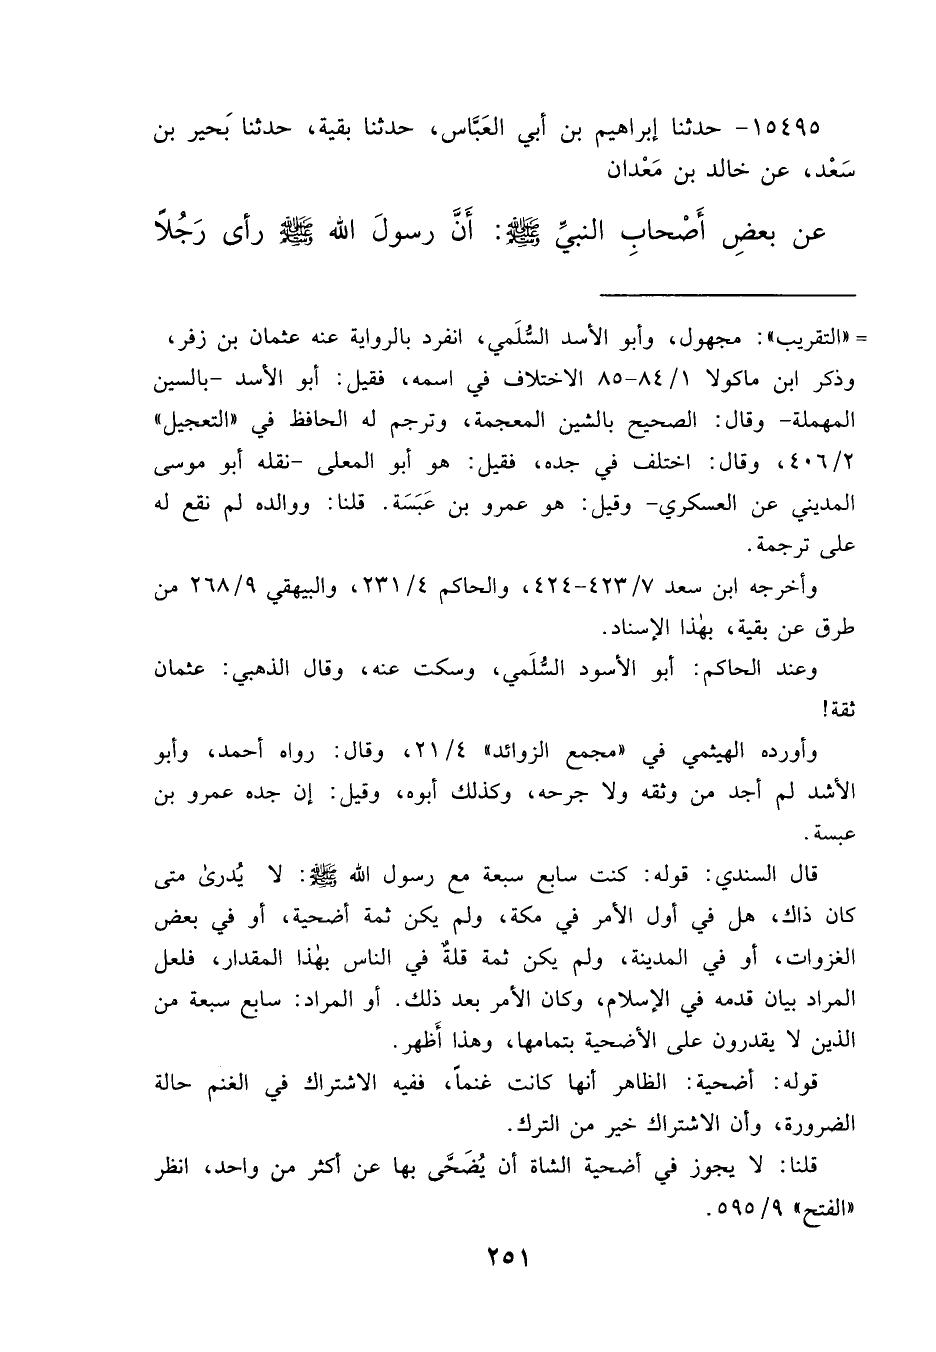 ١٥٤٩٥- حدثنا إبراهيم بن أبي العَبَّاس، حدثنا بقية، حدثنا بَحير بن
سَعْد، عن خالد بن مَعْدان
عن بعضِ أَصْحابِ النبيِّ ﷺ: أَنَّ رسولَ الله ﷺ رأى رَجُلاً
= «التقريب»: مجهول، وأبو الأسد السُّلَمي، انفرد بالرواية عنه عثمان بن زفر،
وذكر ابن ماكولا ٨٤/١-٨٥ الاختلاف في اسمه، فقيل: أبو الأسد -بالسين
المهملة- وقال: الصحيح بالشين المعجمة، وترجم له الحافظ في «التعجيل»
٤٠٦/٢، وقال: اختلف في جده، فقيل: هو أبو المعلى -نقله أبو موسى
المديني عن العسكري- وقيل: هو عمرو بن عَبَسَة. قلنا: ووالده لم نقع له
على ترجمة.
وأخرجه ابن سعد ٤٢٣/٧-٤٢٤، والحاكم ٢٣١/٤، والبيهقي ٢٦٨/٩ من
طرق عن بقية، بهٰذا الإسناد.
وعند الحاكم: أبو الأسود السُّلَمي، وسكت عنه، وقال الذهبي: عثمان
ثقة!
وأورده الهيثمي في «مجمع الزوائد» ٢١/٤، وقال: رواه أحمد، وأبو
الأشد لم أجد من وثقه ولا جرحه، وكذلك أبوه، وقيل: إن جده عمرو بن
عبسة.
قال السندي: قوله: كنت سابع سبعة مع رسول الله ﷺ: لا يُدرىٰ متى
كان ذاك، هل في أول الأمر في مكة، ولم يكن ثمة أضحية، أو في بعض
الغزوات، أو في المدينة، ولم يكن ثمة قلةٌ في الناس بهٰذا المقدار، فلعل
المراد بيان قدمه في الإسلام، وكان الأمر بعد ذلك. أو المراد: سابع سبعة من
الذين لا يقدرون على الأضحية بتمامها، وهذا أَظهر.
قوله: أضحية: الظاهر أنها كانت غنماً، ففيه الاشتراك في الغنم حالة
الضرورة، وأن الاشتراك خير من الترك.
قلنا: لا يجوز في أضحية الشاة أن يُضَحَّى بها عن أكثر من واحد، انظر
«الفتح» ٥٩٥/٩.
٢٥١